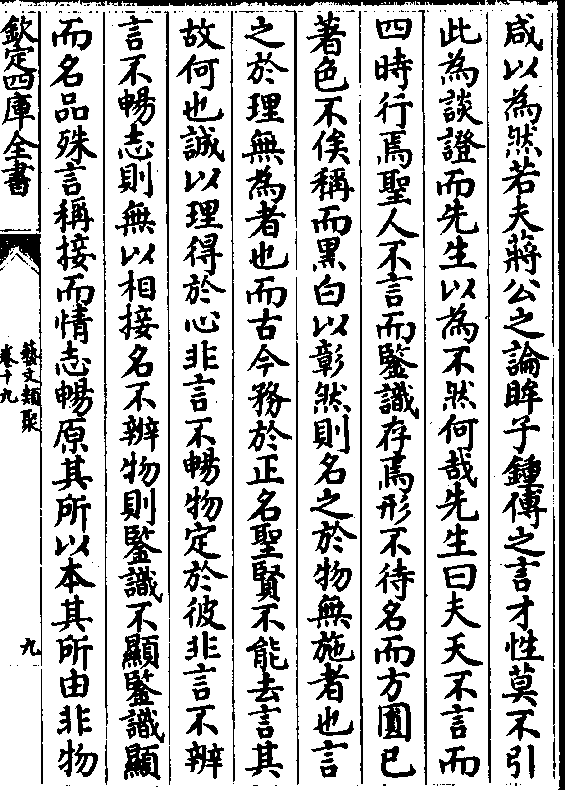 咸以為然若夫蔣公之論眸子鍾傅之言才性莫不引
此為談證而先生以為不然何哉先生曰夫天不言而
四時行焉聖人不言而鑒識存焉形不待名而方圓已
著色不俟稱而黒白以彰然則名之於物無施者也言
之於理無為者也而古今務於正名聖賢不能去言其
故何也誠以理得於心非言不暢物定於彼非言不辨
言不暢志則無以相接名不辨物則鑒識不顯鑒識顯
而名品殊言稱接而情志暢原其所以本其所由非物
欽定四庫全書
藝文類聚
卷十九
九